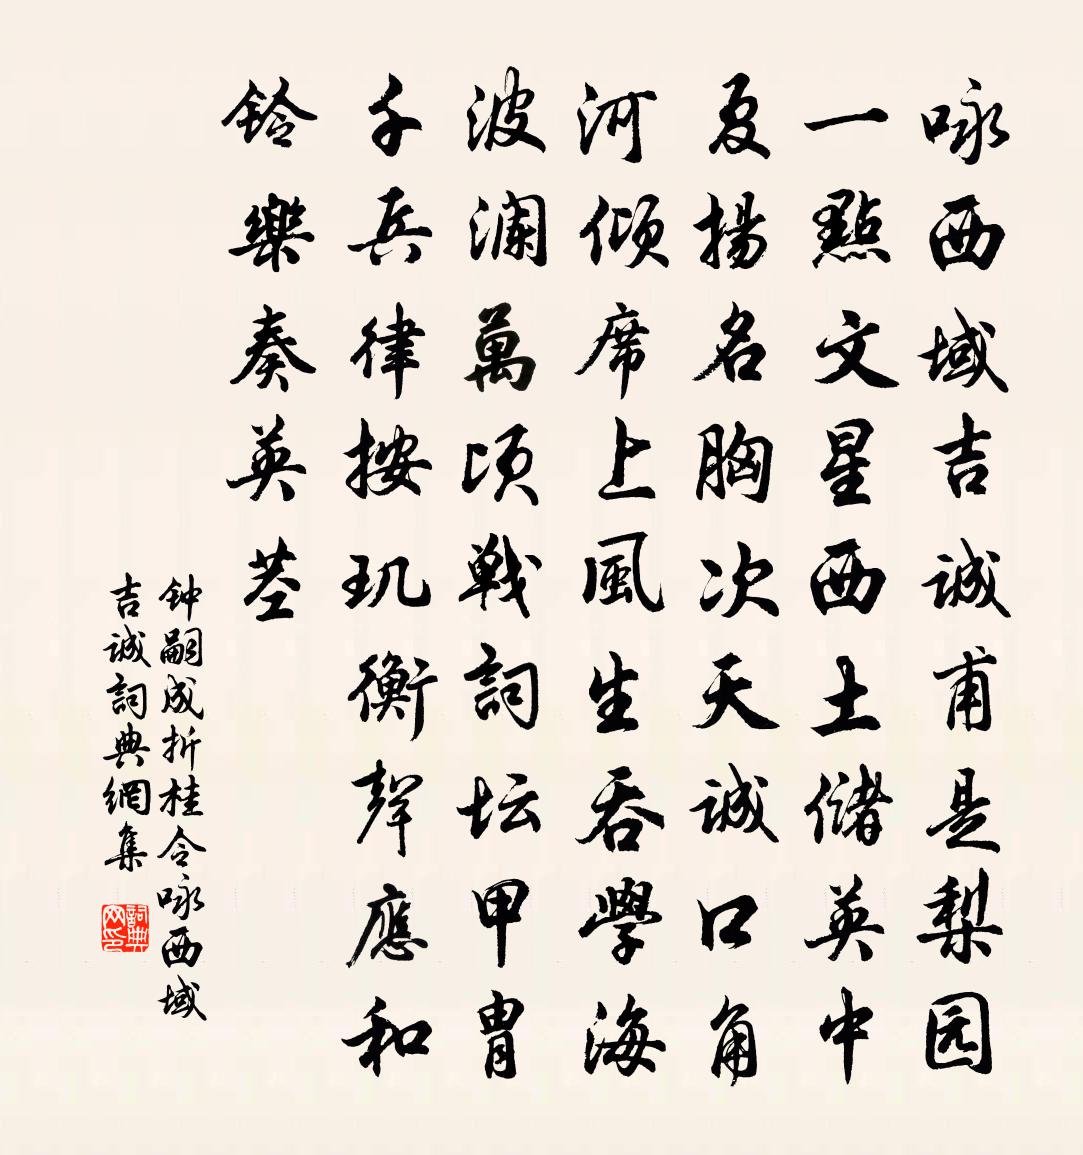 咏西域吉诚甫是梨园
一點文星西土儲英中
夏揚名胸次天诚口角
河倾席上風生吞學海
波澜萬顷戰詞坛甲胄
千兵律按玑衡聲應和
鈴樂奏英茎
钟嗣成折桂令咏西域
吉诚詞典網集
詞典网印